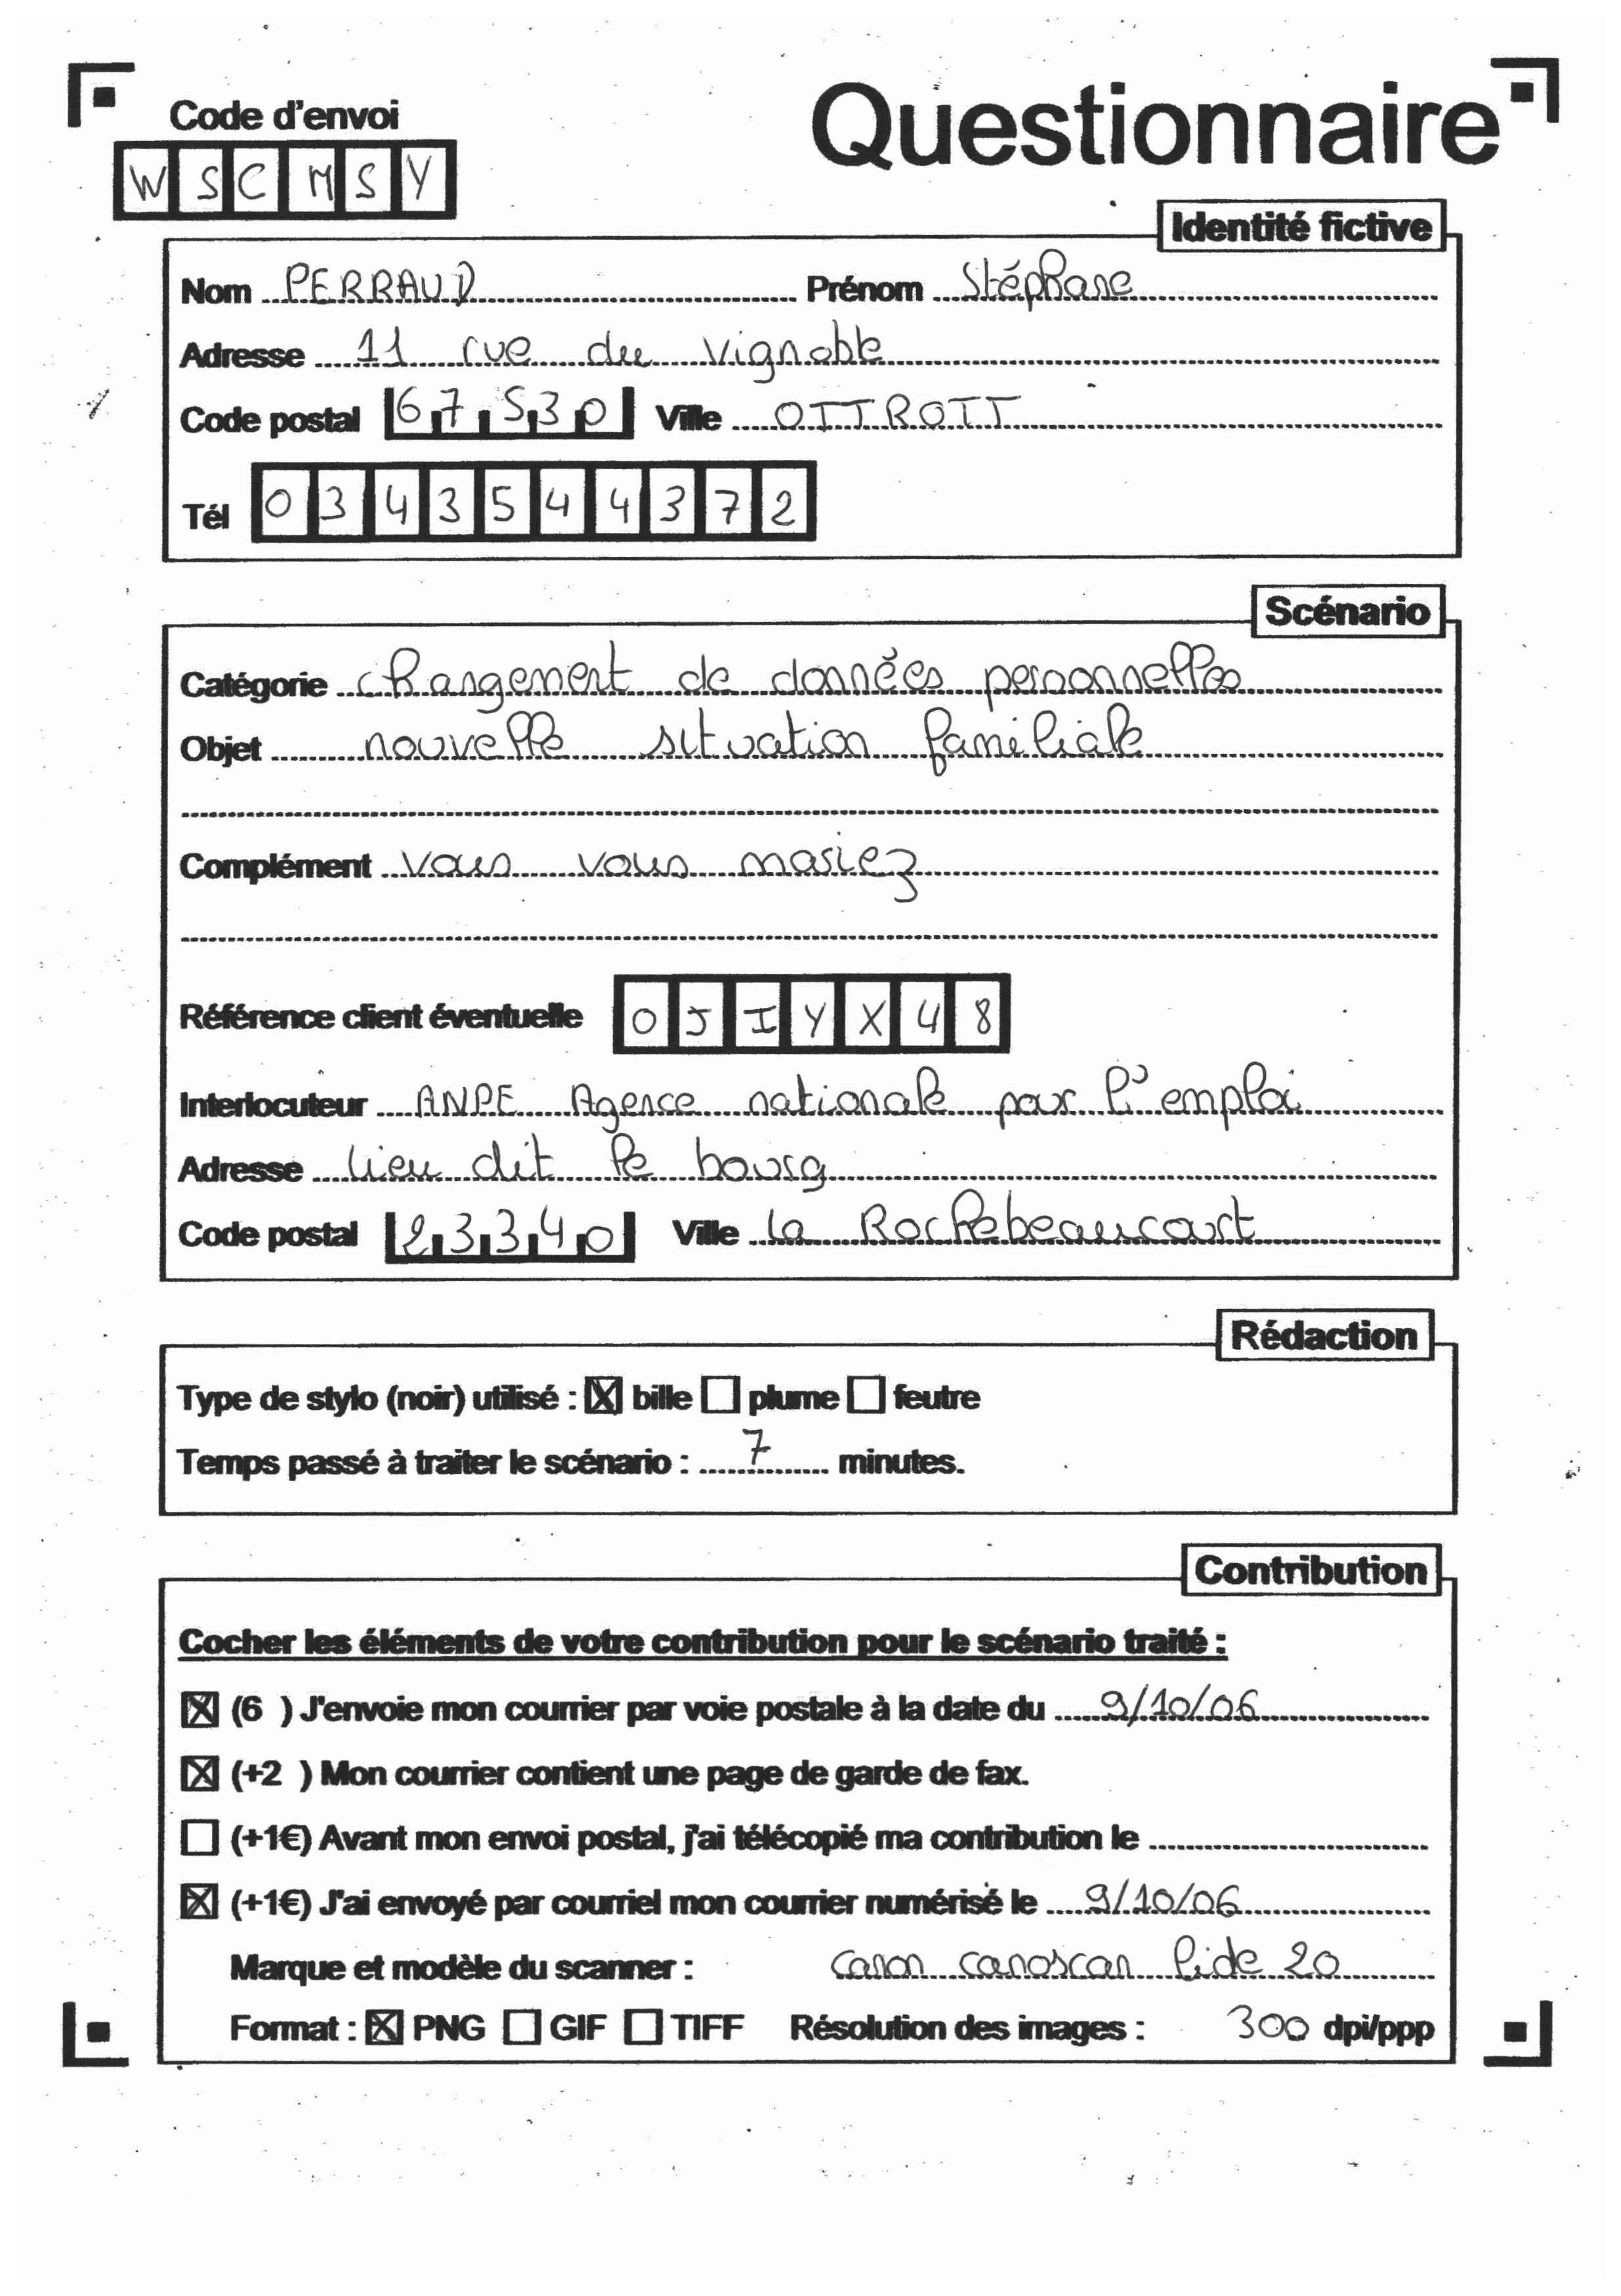 Questionnaire
Code d'envoi
WSCMSY
Identité fictive
Nom PERRAUD Prénom Stéphane
Adresse 11 rue du vignoble
Code postal 67530 Ville OTTROTT
Tél 0343544372
Scénario
Catégorie changement de données personnelles
Objet nouvelle situation familiale
Complément vous vous mariez
Référence client éventuelle OJIYX48
Interlocuteur ANPE Agence nationale pour l'emploi
Adresse lieu dit le bourg
Code postal 23340 Ville la Rochebeaucourt
Rédaction
Type de stylo (noir) utilisé : ☒ bille ☐ plume ☐ feutre
Temps passé à traiter le scénario : 7 minutes.
Contribution
Cocher les éléments de votre contribution pour le scénario traité :
☒ (6 ) J'envoie mon courrier par voie postale à la date du 9/10/06
☒ (+2 ) Mon courrier contient une page de garde de fax.
☐ (+1€) Avant mon envoi postal, j'ai télécopié ma contribution le
☒ (+1€) J'ai envoyé par courriel mon courrier numérisé le 9/10/06
Marque et modèle du scanner : canon canoscan lide 20
Format : ☒ PNG ☐ GIF ☐ TIFF Résolution des images : 300 dpi/ppp